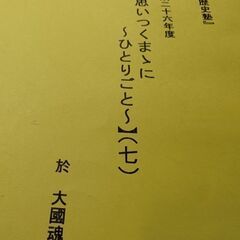 歴史塾』
二十六年度
思いつくまゝに
~ひとりごと~】(七)
於 大國魂